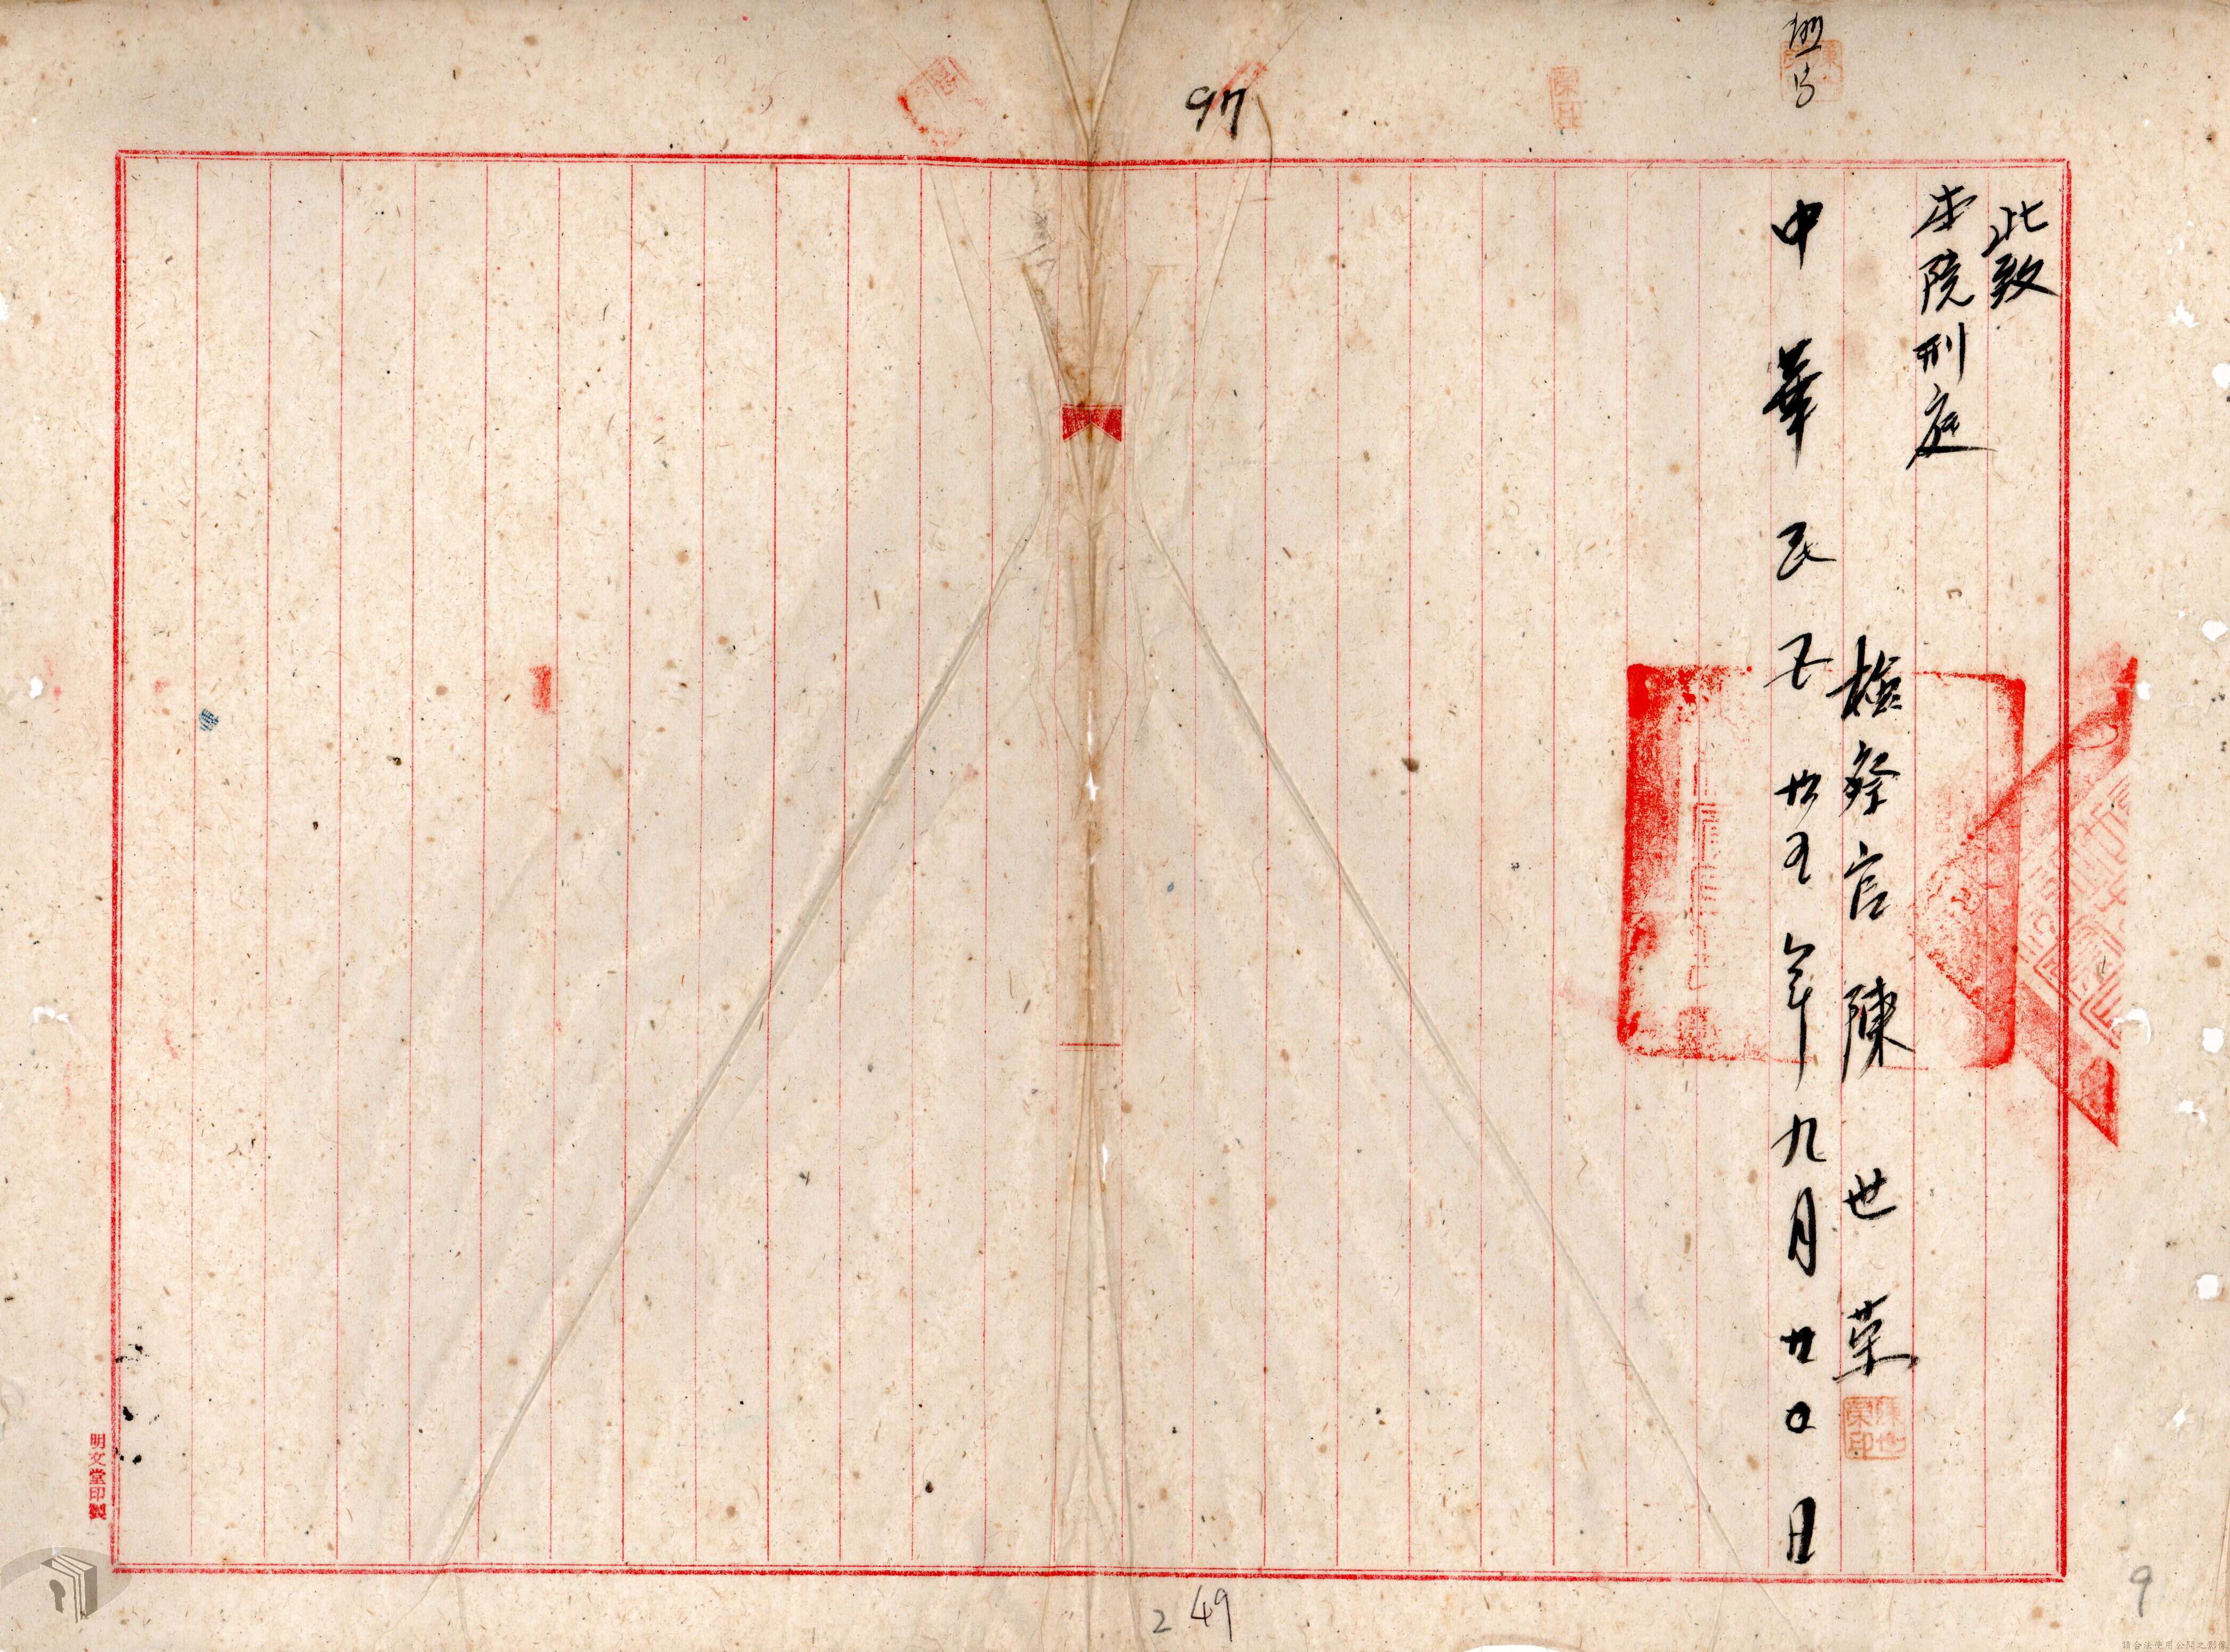 97
此致
本院刑庭
檢察官陳世榮
陳世榮印
中華民國卅五年九月廿〇日
明文堂印製
2
49
9
請合法使用公開之影像